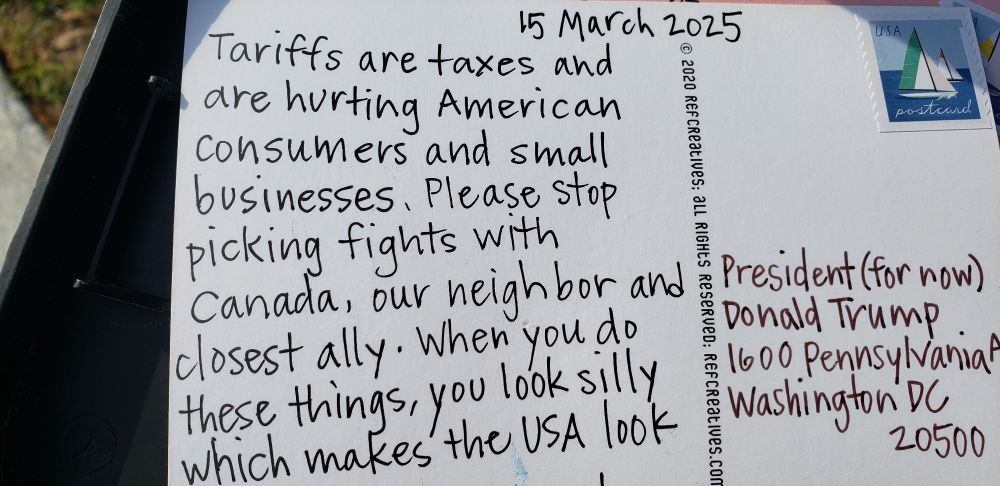 15 March 2025
Tariffs are taxes and
are hurting American
consumers and small
businesses. Please stop
picking fights with
Canada, our neighbor and
closest ally. When you do
these things, you look silly
which makes the USA look
© 2020 REFCREATIVES; ALL RIGHTS RESERVED; REFCREATIVES.COM
USA
postcard
President (for now)
Donald Trump
1600 Pennsylvania A
Washington DC
20500